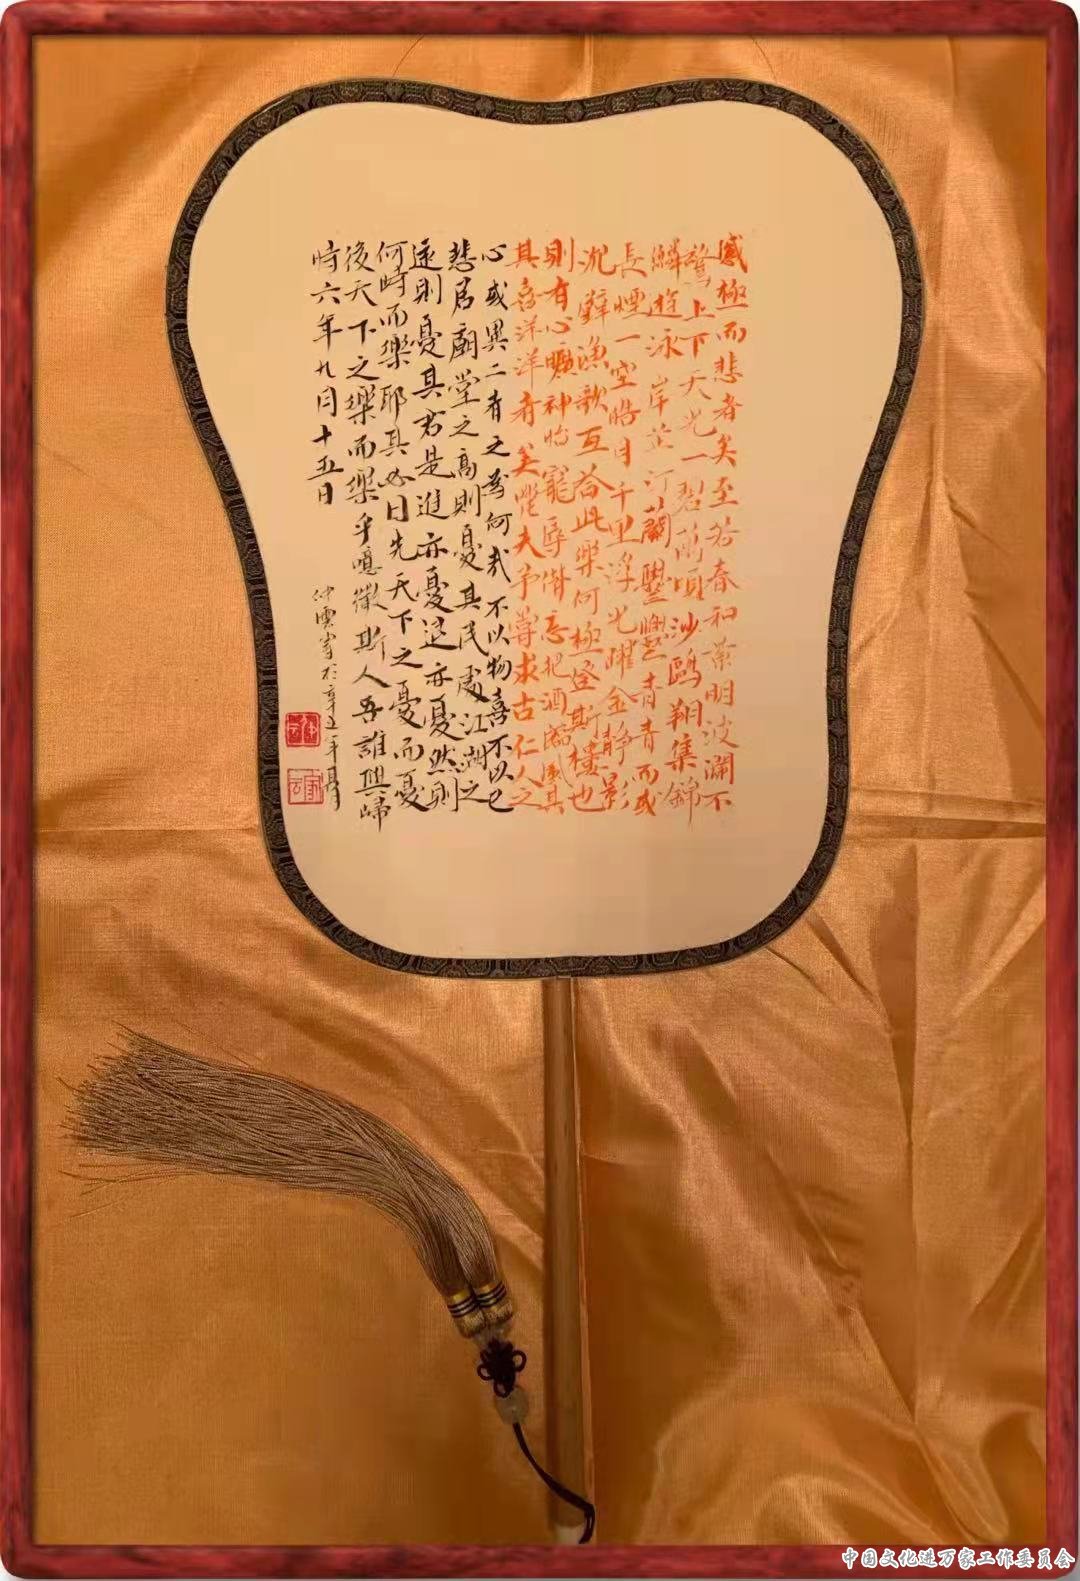 感極而悲者矣至若春和景明波瀾不
驚上下天光一碧萬頃沙鷗翔集錦
鱗遊泳岸芷汀蘭鬱鬱青青而或
長煙一空皓月千里浮光耀金靜影
沉璧漁歌互答此樂何極登斯樓也
則有心曠神怡寵辱偕忘把酒臨風其
其喜洋洋者矣嗟夫予嘗求古仁人之
心或異二者之為何哉不以物喜不以己
悲居廟堂之高則憂其民處江湖之
遠則憂其君是進亦憂退亦憂然則
何時而樂耶其必曰先天下之憂而憂
後天下之樂而樂乎噫微斯人吾誰與歸
時六年九月十五日
仲雲書於辛丑年夏
中国文化进万家工作委员会